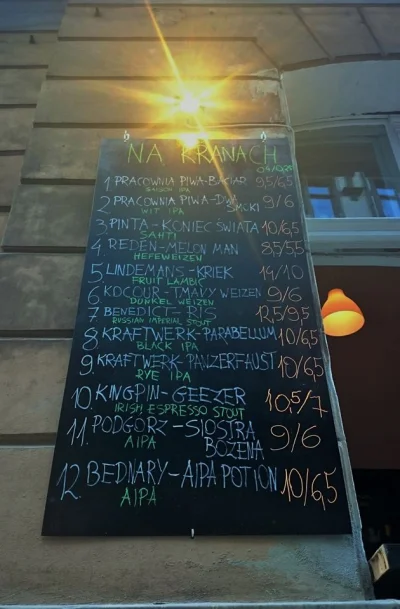 NA KRANACH
0,4/0,25
1 PRACOWNIA PIWA-BACIAR 9,5/6,5
SAISON IPA
2 PRACOWNIA PIWA-DWA SMOKI 9/6
WIT IPA
3. PINTA-KONIEC ŚWIATA 10/6,5
SAHTI
4. REDEN-MELON MAN 8,5/5,5
HEFEWEIZEN
5 LINDEMANS-KRIEK 14/10
FRUIT LAMBIC
6 KOCOUR-TMAVY WEIZEN 9/6
DUNKEL WEIZEN
7 BENEDICT-RIS 12,5/9,5
RUSSIAN IMPERIAL STOUT
8 KRAFTWERK-PARABELLUM 10/6,5
BLACK IPA
9. KRAFTWERK-PANZERFAUST 10/6,5
RYE IPA
10. KINGPIN-GEEZER 10,5/7
IRISH ESPRESSO STOUT
11. PODGÓRZ-SIOSTRA BOŻENA 9/6
AIPA
12. BEDNARY-AIPA POTION 10/6,5
AIPA